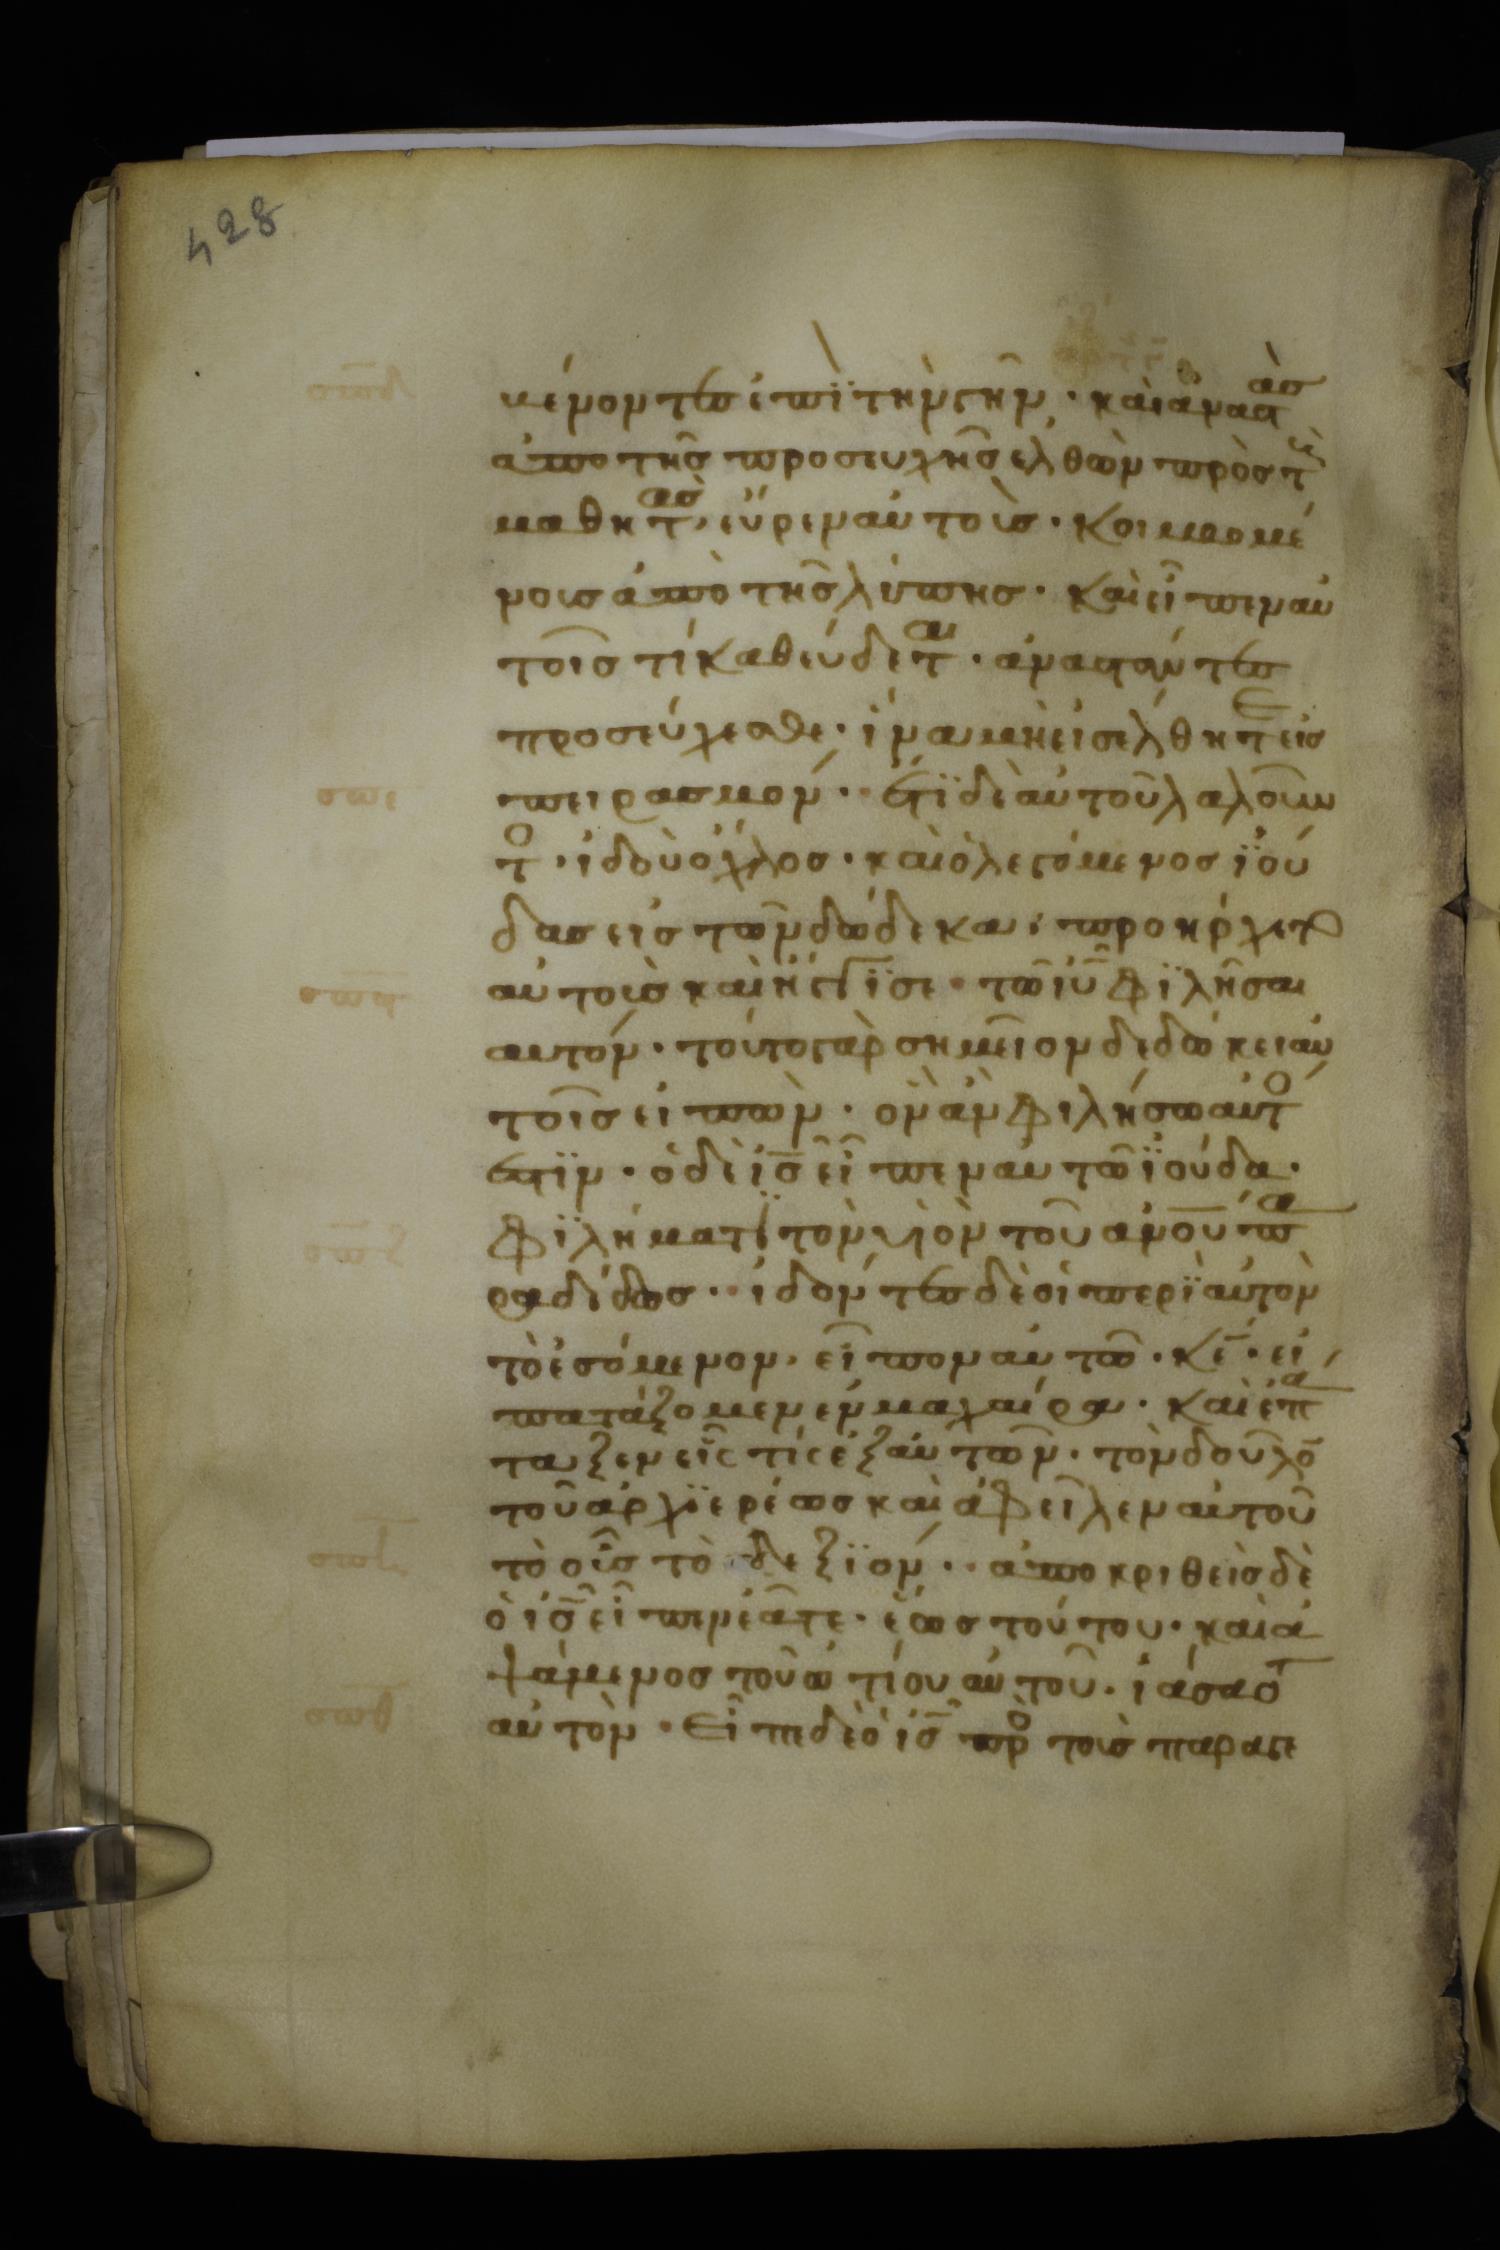 428
νέμοντες ἐπῒ τὴν γῆν · καὶ ἀναστὰς
ἀπο τῆς προσευχῆς ἐλθὼν πρὸς τ
μαθητὰς, εὗρεν αὐτοὺς · κοιμωμέ
νους ἀπὸ τῆς λύπης · καὶ εἶπεν αὐ
τοῖς τί καθεύδεται · ἀναστάντες
προσεύχεσθε · ἵνα μὴ εἰσέλθητε εἰς
πειρασμόν · ἔτϊ δὲ αὐτοῦ λαλοῦν
τος · ἰδοὺ ὄχλος · καὶ ὁ λεγόμενος ϊού
δας εἷς τῶν δώδεκα · προήρχετο
αὐτοὺς καὶ ἤγγϊσε · τῶ ιῦ φϊλῆσαι
αυτόν · τοῦτο γὰρ σημεῖον δεδώκει αὐ
τοῖς εἰπὼν · ὃν ἂν φιλήσω αὐτός
ἐστϊν · ὁ δὲ ις̅ εἶπεν αὐτῶ ϊούδα ·
φϊλήματϊ τὸν υἱὸν τοῦ ανο̅υ̅ πα
ραδίδως · ἰδόντες δὲ οἱ περῒ αὐτὸν
τὸ ἐσόμενον, εἶπον αὐτῶ · κε̅ · εἰ
πατάξομεν ἐν μαχαίρα · καὶ ἐπά
ταξεν εἷς τίς ἐξ αὐτῶν · τὸν δοῦλο̅
τοῦ ἀρχϊερέως καὶ ἀφεῖλεν αὐτοῦ
τὸ οὖς τὸ δεξϊόν · ἀποκριθεὶς δὲ
ὁ ις̅ εἶπεν ἐᾶτε · ἕως τούτου · καὶ ἁ
ψάμενος τοῦ ὠτίου αὐτοῦ · ἰάσατο
αὐτὸν · Εἶπε δὲ ὁ ις̅ πρὸς τοὺς παραγε